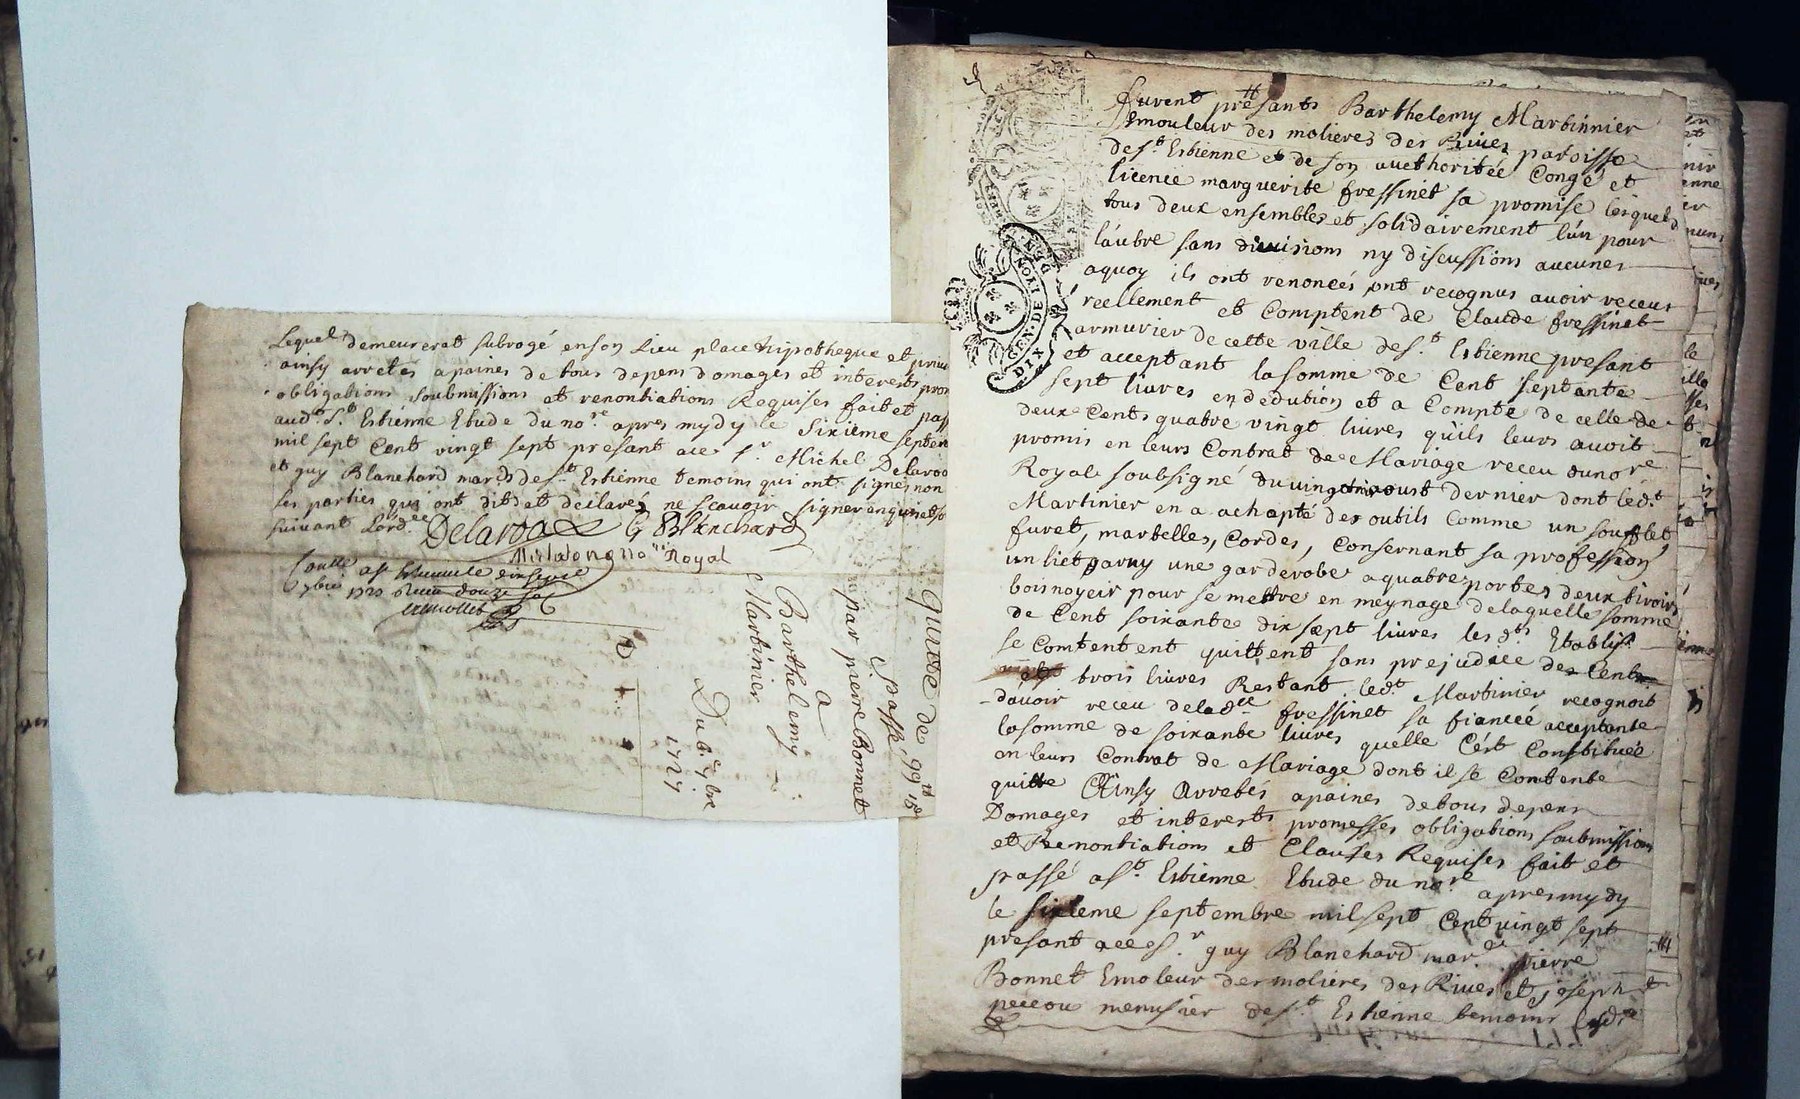 Lequel demeurerat subrogé en son Lieu place hipotheque et
ainsy arretes apaines de tous depens domages et interests
obligations soubmissions et renontiations Requises fait et
aud.t S.t Estienne Etude du no.re apres mydy le Sixieme
mil sept Cent vingt sept presant ace s.r Michel
et guy Blanchard mar.d de s.t Estienne temoins qui ont signés non
les parties qui ont dit et declarés ne scavoir signer
suivant Lord.ce
Delaroa G Blanchard
Royal
Quitte de
passé
par pierre Bonnet
A
Barthelemy
Martinier
Du 6.e 7bre
1727
DIX DEN. GEN. DE LYON
furent presants Barthelemy Martinnier
Emouleur des molieres des Rives paroisse
de s.t Estienne et de son aucthoritée Congé et
licence marguerite fressinet sa promise lesquels
tous deux ensembles et solidairement lún pour
láutre sans divisions ny discussions aucunes
aquoy ils ont renoncés ont recognus avoir receus
reellement et Comptent de Claude fressinet
armurier de cette ville de s.t Estienne presant
et acceptant la somme de Cent septante
sept livres en dedution et a Compte de celle de
deux Cents quatre vingt livres quils leurs avoit
promis en leurs Contrat de Mariage receu du no.re
Royal soubsigné du aoust dernier dont led.t
Martinier en a achapté des outils Comme un soufflet
furet, martelles, Cordes, Consernant sa profession
un liet garny une garderobe a quatre portes deux tiroirs
bois noyeir pour se mettre en meynage de laquelle somme
de Cent soixante dix sept livres les d.ts Etablis
se Contentent quittent sans prejudice de Cent
trois livres Restant led.t Martinier recognoit
dávoir receu de lad.te fressinet sa fiancée acceptante
la somme de soixante livres quelle Cést Constituée
en leurs Contrat de Mariage dont il se Contente
quitte Ainsy Arretes apaines de tous depens
Domages et interests promesses obligations soubmissions
et Renontiations et Clauses Requises fait et
passé a s.t Estienne Etude du no.re apres mydy
le sixieme septembre mil sept Cent vingt sept
presant ace s.r guy Blanchard mar.d pierre
Bonnet Emoleur des molieres des Rives et joseph
peceou menusier de s.t Estienne temoins